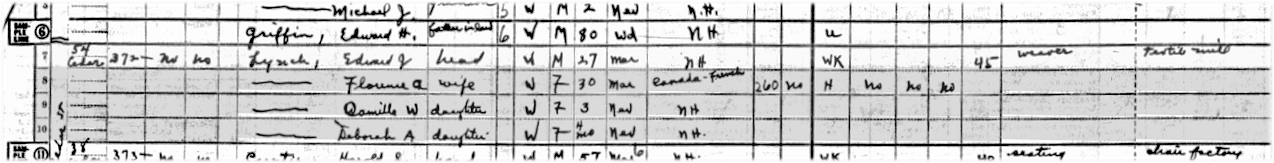 Michael J. 5 W M 2 Nev N.H.
SAM-PLE LINE 6 Griffin, Edward H. father in law 6 W M 80 Wd NH U
7 54 Cedar 372 no no Lynch, Edward J head W M 27 Mar NH WK 45 weaver Textile mill
8 Florence A wife W F 30 Mar Canada-French 260 no H no no no
9 Camille W daughter W F 3 Nev NH
10 Deborah A daughter W F 4 mo Nev N.H.
SAM-PLE 11 38 373 no W M 57 N.H. WK 40 seating chair factory